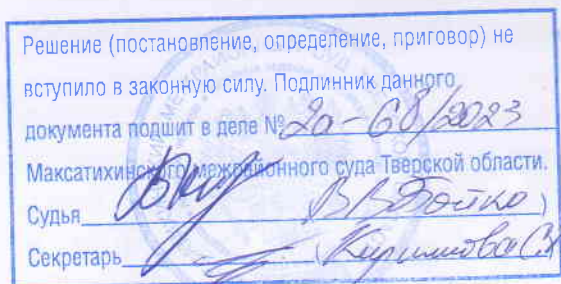 Решение (постановление, определение, приговор) не
вступило в законную силу. Подлинник данного
документа подшит в деле № 2а-68/2023
Максатихинского межрайонного суда Тверской области.
Судья В.В. Бойко )
Секретарь (